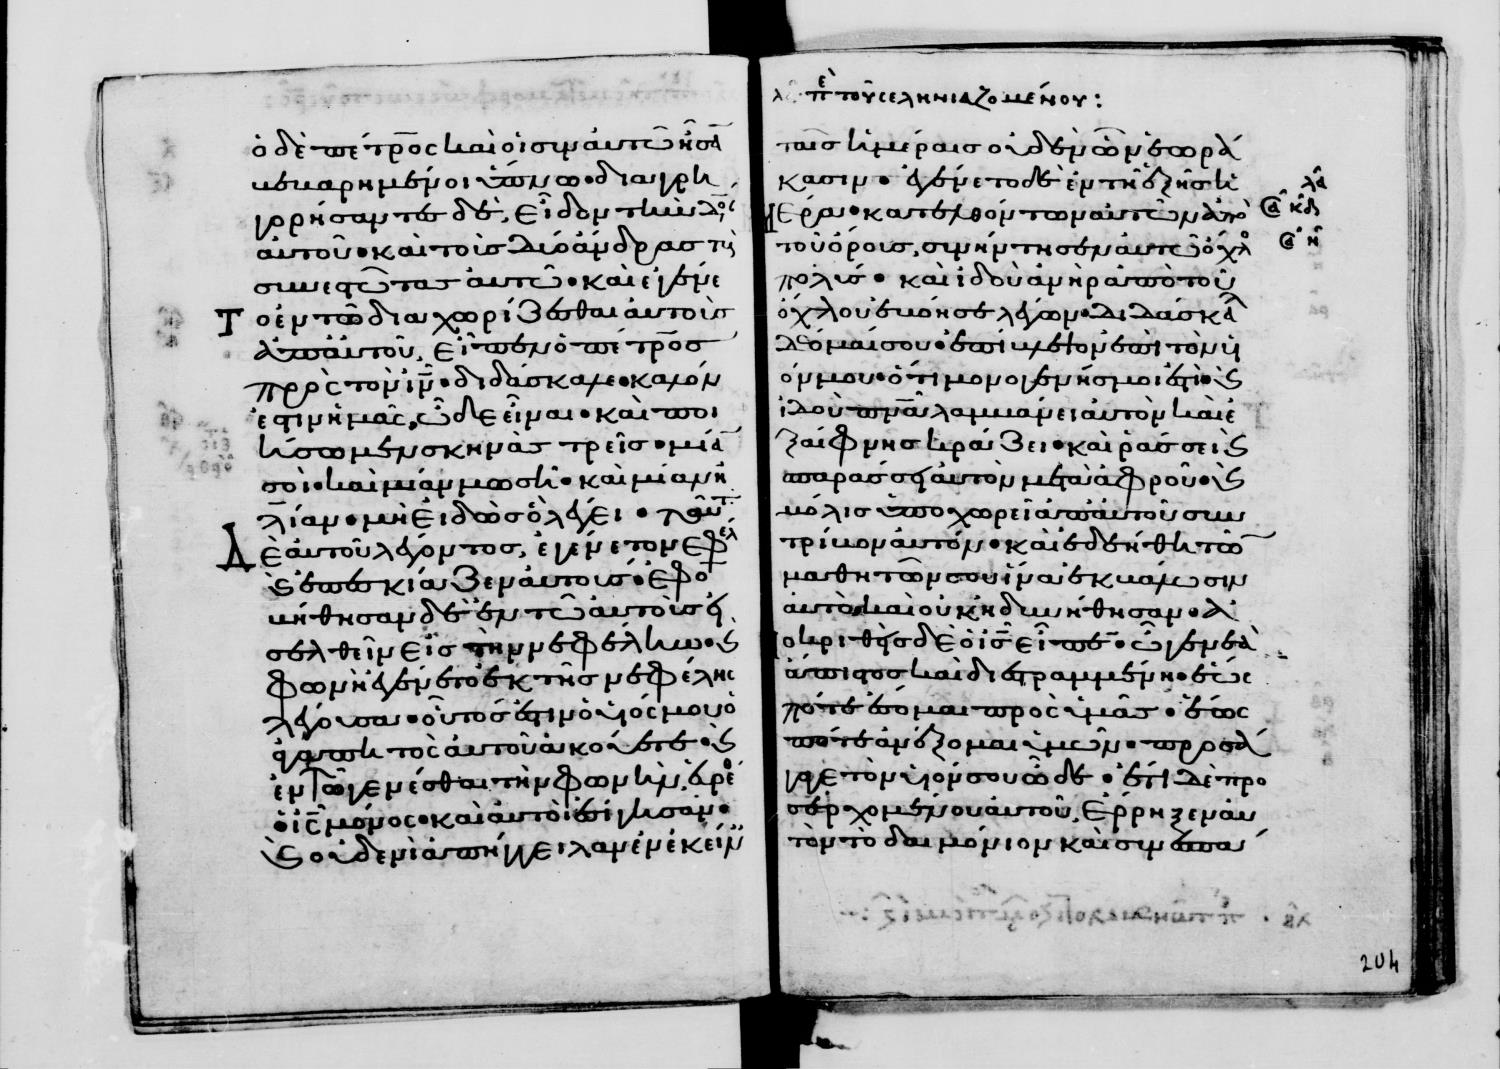 ὁ δὲ πέτρος καὶ οἱ σὺν αὐτῶ ἦσαν
βεβαρημένοι ὕπνω· διαγρη
γορήσαντες δὲ, εἶδον τὴν δόξαν
αὐτοῦ· καὶ τοὺς δύο ἄνδρας τοὺς
συνεστῶτας αὐτῶ· καὶ ἐγένε
Το ἐν τῶ διαχωρίζεσθαι αὐτοὺς
ἀπ' αὐτοῦ, εἶπεν ὁ πέτρος
πρὸς τὸν ιν· διδάσκαλε· καλόν
ἐστιν ἡμᾶς ὧδε εἶναι· καὶ ποι
ήσωμεν σκηνὰς τρεῖς· μίαν
σοὶ· καὶ μίαν μωσῆ· καὶ μίαν ἡ
λίαν· μὴ εἰδὼς ὃ λέγει· ταῦτα
Δὲ αὐτοῦ λέγοντος, ἐγένετο νεφέλη
καὶ ἐπεσκίαζεν αὐτούς· ἐφο
βήθησαν δὲ ἐν τῶ αὐτοὺς εἰ
σελθεῖν εἰς τὴν νεφέλην· καὶ
φωνὴ ἐγένετο ἐκ τῆς νεφέλης
λέγουσα· οὗτός ἐστιν ὁ υἱός μου ὁ
ἀγαπητός αὐτοῦ ἀκούετε· καὶ
ἐν τῶ γενέσθαι τὴν φωνὴν, εὑρέθη
ὁ ις μόνος· καὶ αὐτοὶ ἐσίγησαν·
καὶ οὐδενὶ ἀπήγγειλαν ἐν ἐκείναις
π τοῦ σεληνιαζομένου:
ταῖς ἡμέραις οὐδὲν ὧν ἑωρά
κασιν· ἐγένετο δὲ ἐν τῆ ἑξῆς ἡ
μέρα· κατελθόντων αὐτῶν ἀπὸ
τοῦ ὄρους, συνήντησεν αὐτῶ ὄχλος
πολύς· καὶ ἰδοὺ ἀνὴρ ἀπὸ τοῦ
ὄχλου ἐβόησε λέγων· διδάσκαλε
δέομαί σου· ἐπίβλεψον ἐπὶ τὸν υἱ
όν μου· ὅτι μονογενής μοι ἐστὶ· καὶ
ἰδοὺ πνα λαμβάνει αὐτὸν καὶ ἐ
ξαίφνης κράζει· καὶ ῥάσσει καὶ
σπαράσσει αὐτὸν μετὰ ἀφροῦ· καὶ
μόλις ὑποχωρεῖ ἀπ' αὐτοῦ συν
τρίβον αὐτόν· καὶ ἐδεήθην τῶν
μαθητῶν σου ἵνα ἐκβάλωσιν
αὐτὸ καὶ οὐκ ἠδυνήθησαν· ἀπ
οκριθεὶς δὲ ὁ ις εἶπεν· ὦ γενεὰ
ἄπιστος καὶ διεστραμμένη· ἕως
πότε ἔσομαι πρὸς ὑμᾶς· ἕως
πότε ἀνέξομαι ὑμῶν· προσά
γαγε τὸν υἱόν σου ὧδε· ἔτι δὲ προ
σερχομένου αὐτοῦ, ἔρρηξεν αὐ
τὸν τὸ δαιμόνιον καὶ συνεσπά
204